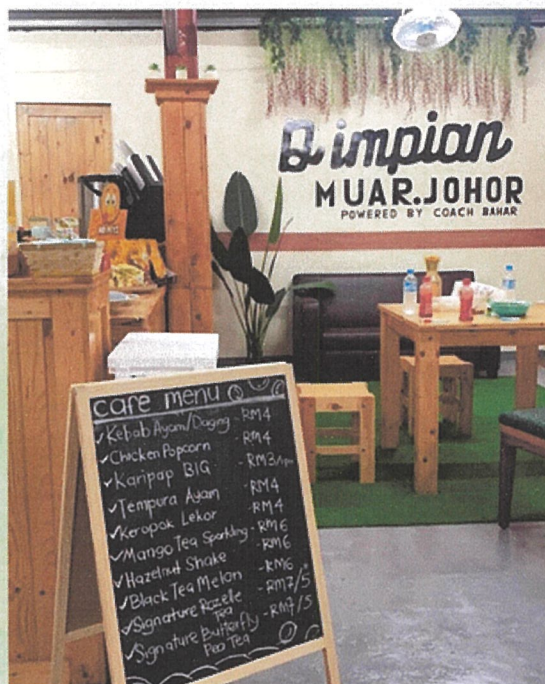 D'impian
MUAR.JOHOR
POWERED BY COACH BAHAR
cafe menu
✓Kebab Ayam/Daging - RM4
✓Chicken Popcorn - RM4
✓Karipap BIG - RM3/1pcs
✓Tempura Ayam - RM4
✓Keropok Lekor - RM4
✓Mango Tea Sparkling - RM6
✓Hazelnut Shake - RM6
✓Black Tea Melon - RM6
✓Signature Rozelle - RM7/5
Tea
✓Signature Butterfly - RM7/5
Pea Tea